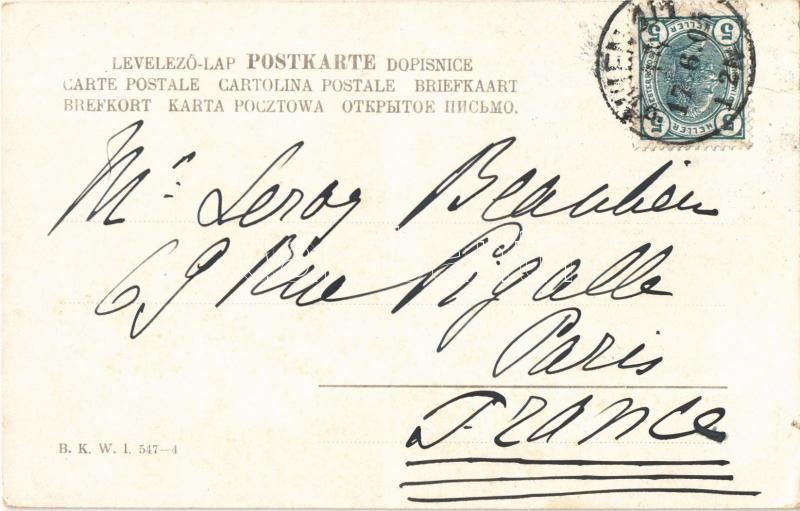 LEVELEZŐ-LAP POSTKARTE DOPISNICE
CARTE POSTALE CARTOLINA POSTALE BRIEFKAART
BREFKORT KARTA POCZTOWA ОТКРЫТОЕ ПИСЬМО.
5 HELLER 5
17 6
Mr Leroy Beaulieu
69 Rue Pigalle
Paris
France
B. K. W. I. 547—4